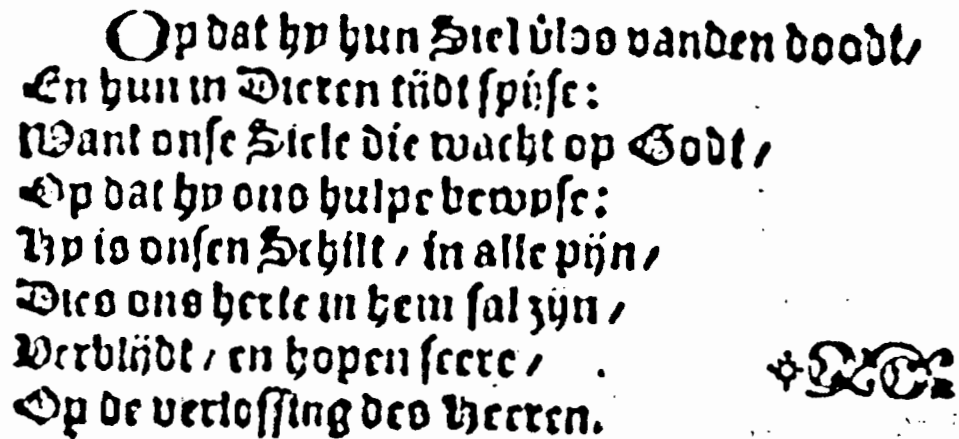 Op dat hy hun Siel vlos vanden doodt/
En hun in Dieren tijdt spijse:
Want onse Siele die wacht op Godt/
Op dat hy ons hulpe bewyse:
Hy is onsen Schilt / in alle pijn/
Dies ons herte in hem sal zijn/
Verblijdt / en hopen seere/
Op de verlossing des Heeren.